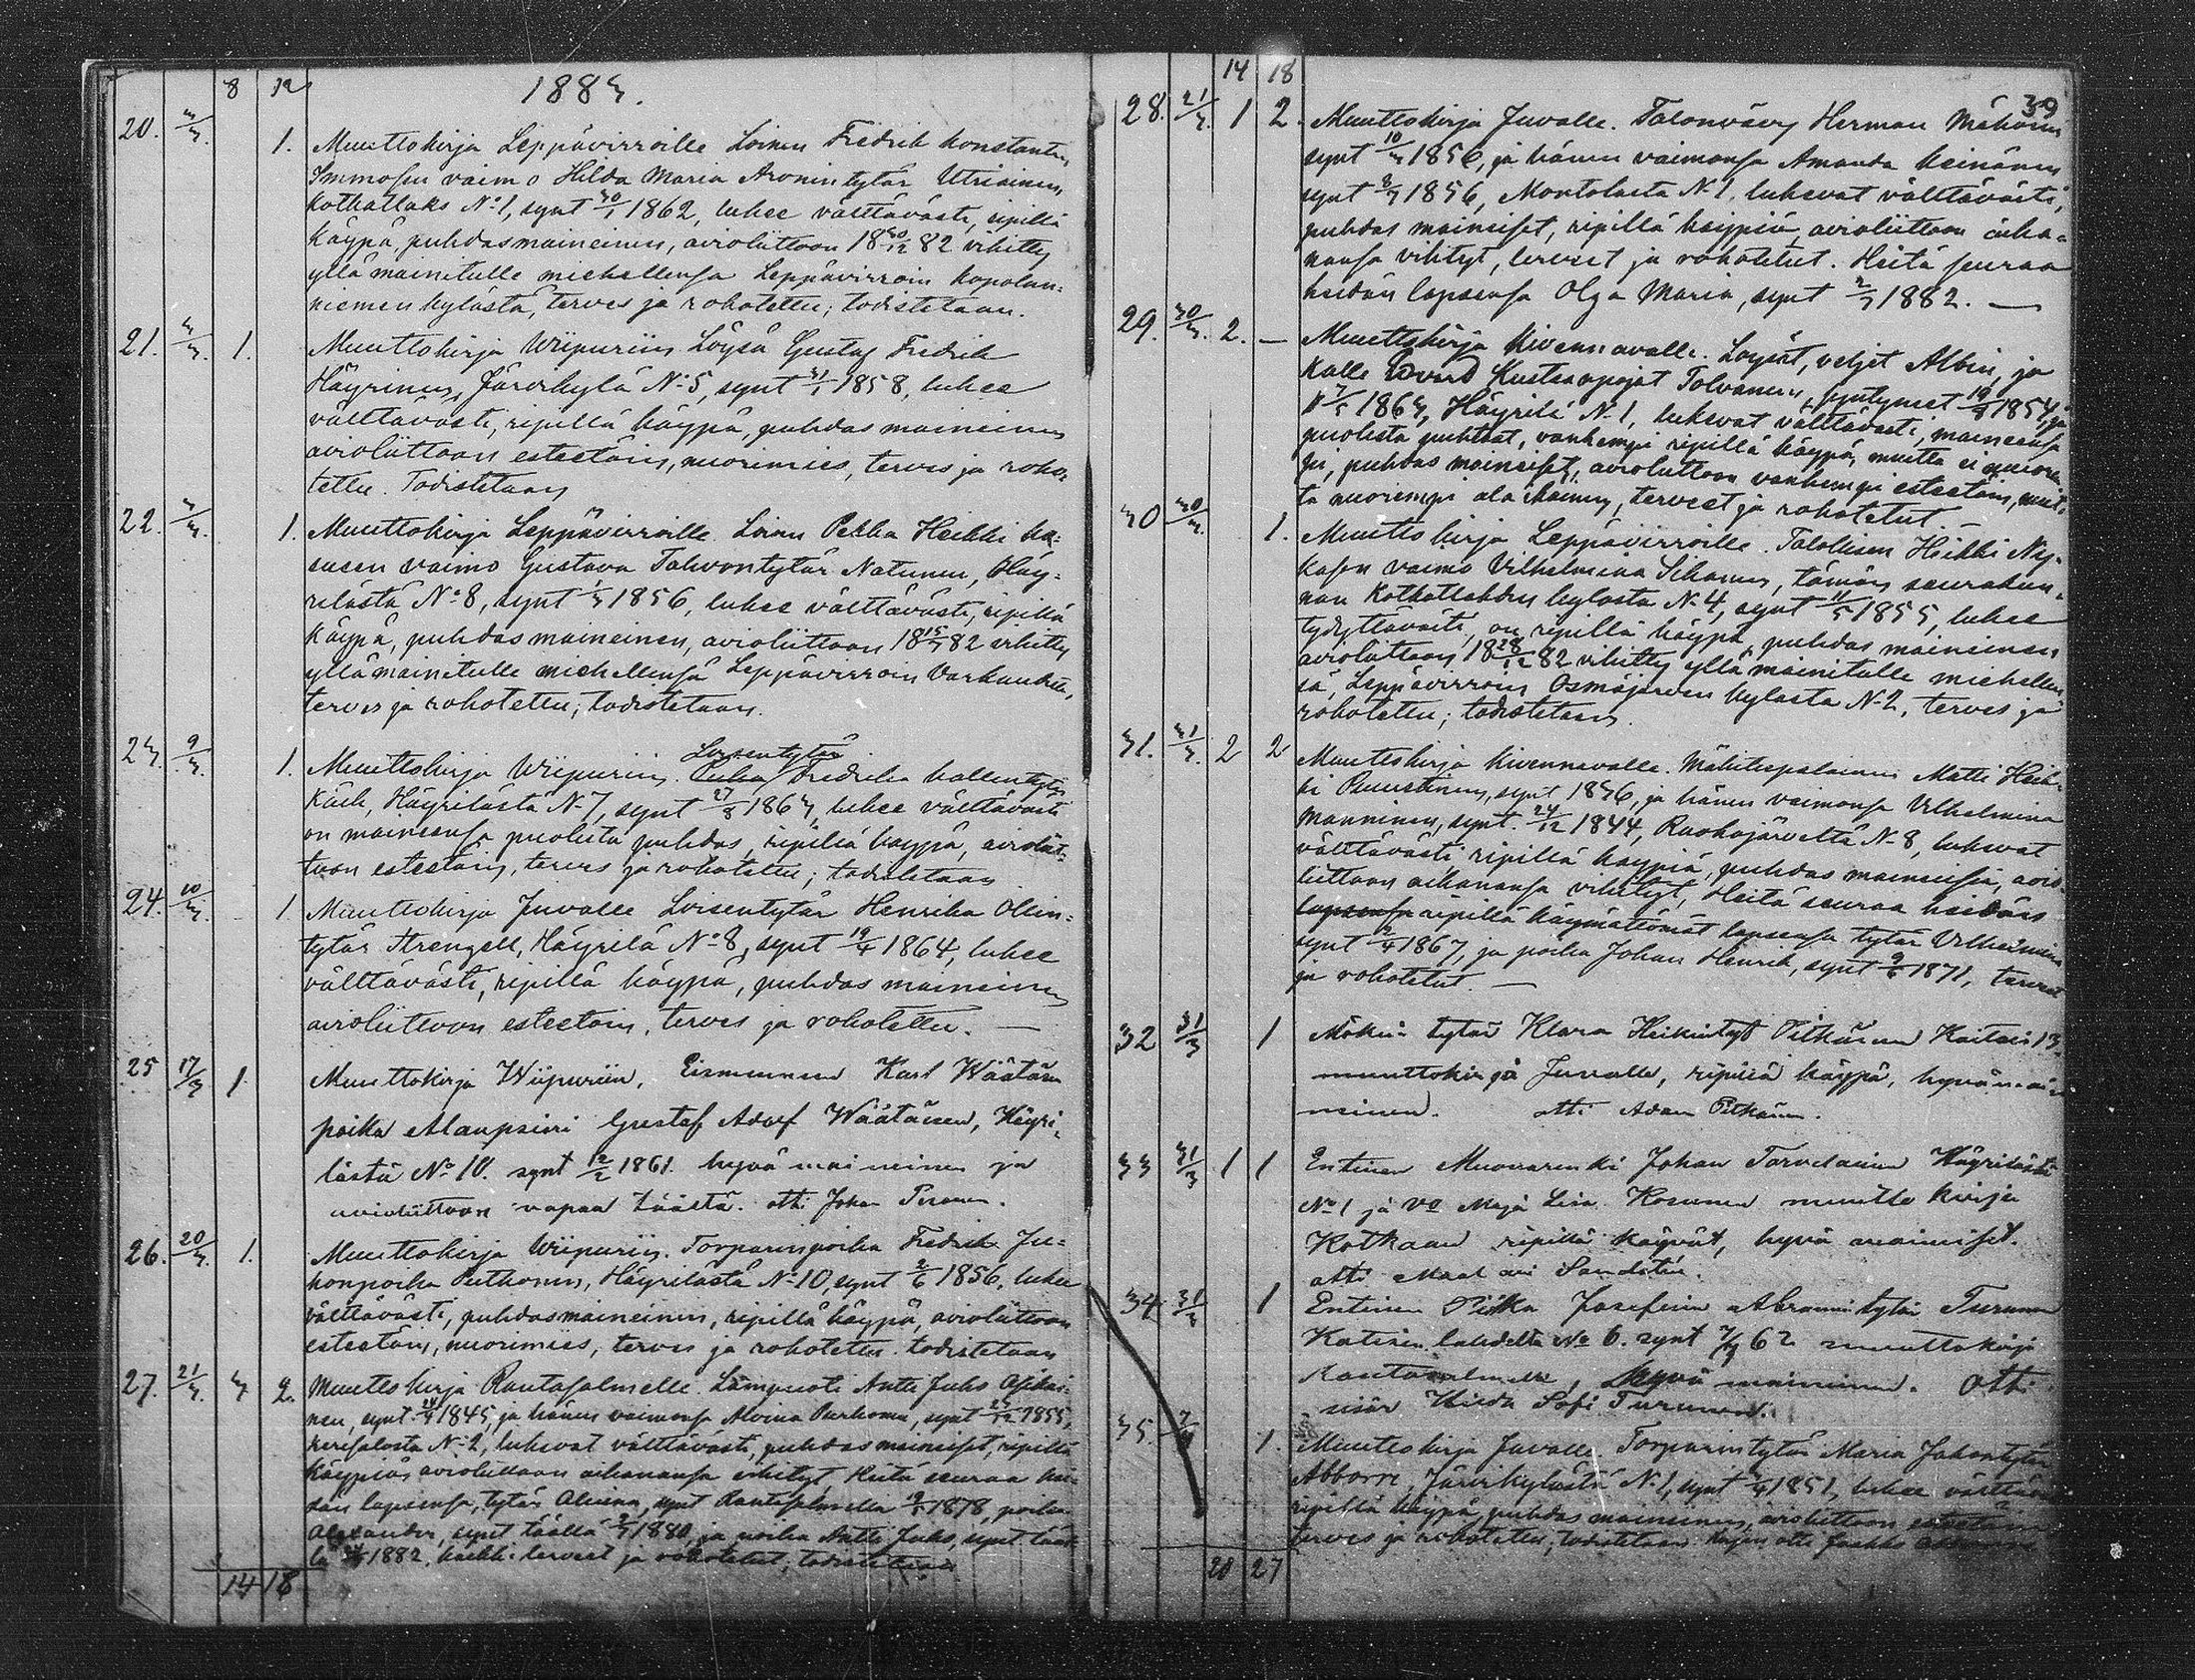 8 12 1883.
20. 3/3. 1. Muuttokirja Leppävirroille Loinen Fredrik Konstantin
Immosen vaimo Hilda Maria Aronintytär Utriainen,
Kotkatlaks N:o 1, synt 30/1 1862, lukee välttävästi, ripillä
käypä, puhdasmaineinen, avioliittoon 18 30/12 82 vihitty
yllämainitulle miehellensä Leppävirroin Kopolan-
niemen kylästä, terves ja rokotettu; todistetaan.
21. 3/3. 1. Muuttokirja Wiipuriin Löysä Gustaf Fredrik
Häyrinen, Järvikylä N:o 5, synt 31/1 1858, lukee
välttävästi, ripillä käypä, puhdas maineinen
avioliittoon esteetöin, nuorimies, terves ja roko-
tettu. Todistetaan
22. 3/3. 1. Muuttokirja Leppävirroille. Loinen Pekka Heikki
susen vaimo Gustava Tahvontytär Natunen, Häy-
rilästä N:o 8, synt 1/3 1856, lukee välttävästi, ripillä
käypä, puhdasmaineinen, avioliittoon 18 15/7 82 vihitty
yllämainitulle miehellensä Leppävirroin Varkauden,
terves ja rokotettu; todistetaan.
23. 9/3. 1. Muuttokirja Wiipuriin. Loisentytär Fredrika Kallentytär
Käck, Häyrilästä N:o 7, synt 27/8 1863, lukee välttävästi
on maineensa puolesta puhdas, ripillä käypä, avioliit-
toon esteetöin, terves ja rokotettu; todistetaan
24. 10/3. 1 Muuttokirja Juvalle Loisentytär Henrika Ollin-
tytär Strengell, Häyrilä N:o 8, synt 19/4 1864, lukee
välttävästi, ripillä käypä, puhdas maineinen
avioliittoon esteetöin, terves ja rokotettu. —
25 17/3 1. Muuttokirja Wiipuriin, Karl Wäätäsen
poika Alaupsieri Gustaf Adolf Wäätäisen, Häyri-
lästä No 10. synt 12/2 1861. hyvä maineinen ja
avioliittoon vapaa täältä. otti Johan Turunen.
26. 20/3. 1. Muuttokirja Wiipuriin. Torparinpoika Fredrik Ju-
honpoika Puthonen, Häyrilästä N:o 10, synt 2/6 1856, lukee
välttävästi, puhdasmaineinen, ripillä käypä, avioliittoon
esteetöin, nuorimies, terves ja rokotettu. todistetaan
27. 21/3. 3 2. Muuttokirja Rantasalmelle. Lampuoti Antti Juho Asikai-
nen, synt 24/4 1845, ja hänen vaimonsa Alvina Purhonen, synt 25/12 1855,
Kerisalosta N:o 2, lukevat välttävästi, puhdasmaineiset, ripillä
käypiä, avioliittoon aikanansa vihityt, Heitä seuraa hei-
dän lapsensa, tytär Aliina, synt Rantasalmella 19/5 1878, poika
Alexander, synt täällä 2/7 1880, ja poika Antti Juho, synt tääl-
lä 1882, kaikki terveet ja rokotetut; todistetaan
14 18
14 18
39
28. 21/3. 1 2. Muuttokirja Juvalle. Talonväävy Herman Mähönen
synt 10/3 1856, ja hänen vaimonsa Amanda Keinänen
synt 8/7 1856, Montolasta N:o 1, lukevat välttävästi,
puhdas maineiset, ripillä käypiä, avioliittoon aika-
nansa vihityt, terveet ja rokotetut. Heitä seuraa
heidän lapsensa Olga Maria, synt 2/7 1882. —
29. 30/3. 2. — Muuttokirja Kivennavalle. Löysät, veljet Albin, ja
Kalle Edvard Kustaanpojat Tolvanen, syntyneet 19/8 1854, ja
7/5 1863, Häyrilä N:o 1, lukevat välttävästi, maineensa
puolesta puhtaat, vanhempi ripillä käypä, mutta ei nuorem-
pi, puhdas maineiset, avioliittoon vanhempi esteetöin, mut-
ta nuorempi ala ikäinen, terveet ja rokotetut. —
30 30/3. 1. Muuttokirja Leppävirroille. Talollisen Heikki Ny-
käsen vaimo Vilhelmina Sihvonen, tämän seurakun-
nan Kotkatlahden kylästä N:o 4, synt 11/5 1855, lukee
tyydyttävästi, on ripillä käypä, puhdas maineinen
avioliittoon 18 28/12 82 vihitty yllämainitulle miehellen-
sä, Leppävirroin Osmäjärven kylästä N:o 2, terves ja
rokotettu; todistetaan.
31. 31/3. 2 2 Muuttokirja Kivennavalle. Mäkitupalainen Matti Heik-
ki Puustinen, synt 1836, ja hänen vaimonsa Vilhelmina
Manninen, synt. 24/12 1844, Ruokojärveltä N:o 8, lukevat
välttävästi, ripillä käypiä, puhdas maineisia, avio-
liittoon aikanansa vihityt, Heitä seuraa heidän
lapsensa ripillä käymättömät lapsensa tytär Vilhelmina
synt 2/4 1867, ja poika Johan Henrik, synt 9/6 1871, terveet
ja rokotetut. —
32 31/3 1 Mökin tytär Klara Heikintyt Pitkänen Kaitais 13
muuttokirja Juvalle, ripillä käypä, hyvä mai-
neinen. otti Adam Pitkänen.
33 31/3 1 1 Entinen Muonarenki Johan Tarvelainen Häyrilästä
No 1 ja vo Maja Lisa Kosunen muuttokirja
Kotkaan ripillä käyvät, hyvä maineiset.
otti
34. 31/3 1 Entinen Piika Josefiina Abramintytär Turunen
Katisenlahdelta No 6. synt 7/9 62 muuttokirja
Rantasalmelle, Hyvä maineinen. Otti
sisar Hilda Sofi Turunen.
35. 7/4 1. Muuttokirja Juvalle. Torparintytär Maria Juhontytär
Abborre, Järvikylästä N:o 1, synt 1851, lukee välttävä
ripillä käypä, puhdas maineinen, avioliittoon esteetöin
terves ja rokotettu; todistetaan. Kirjan otti Jaakko
20 27